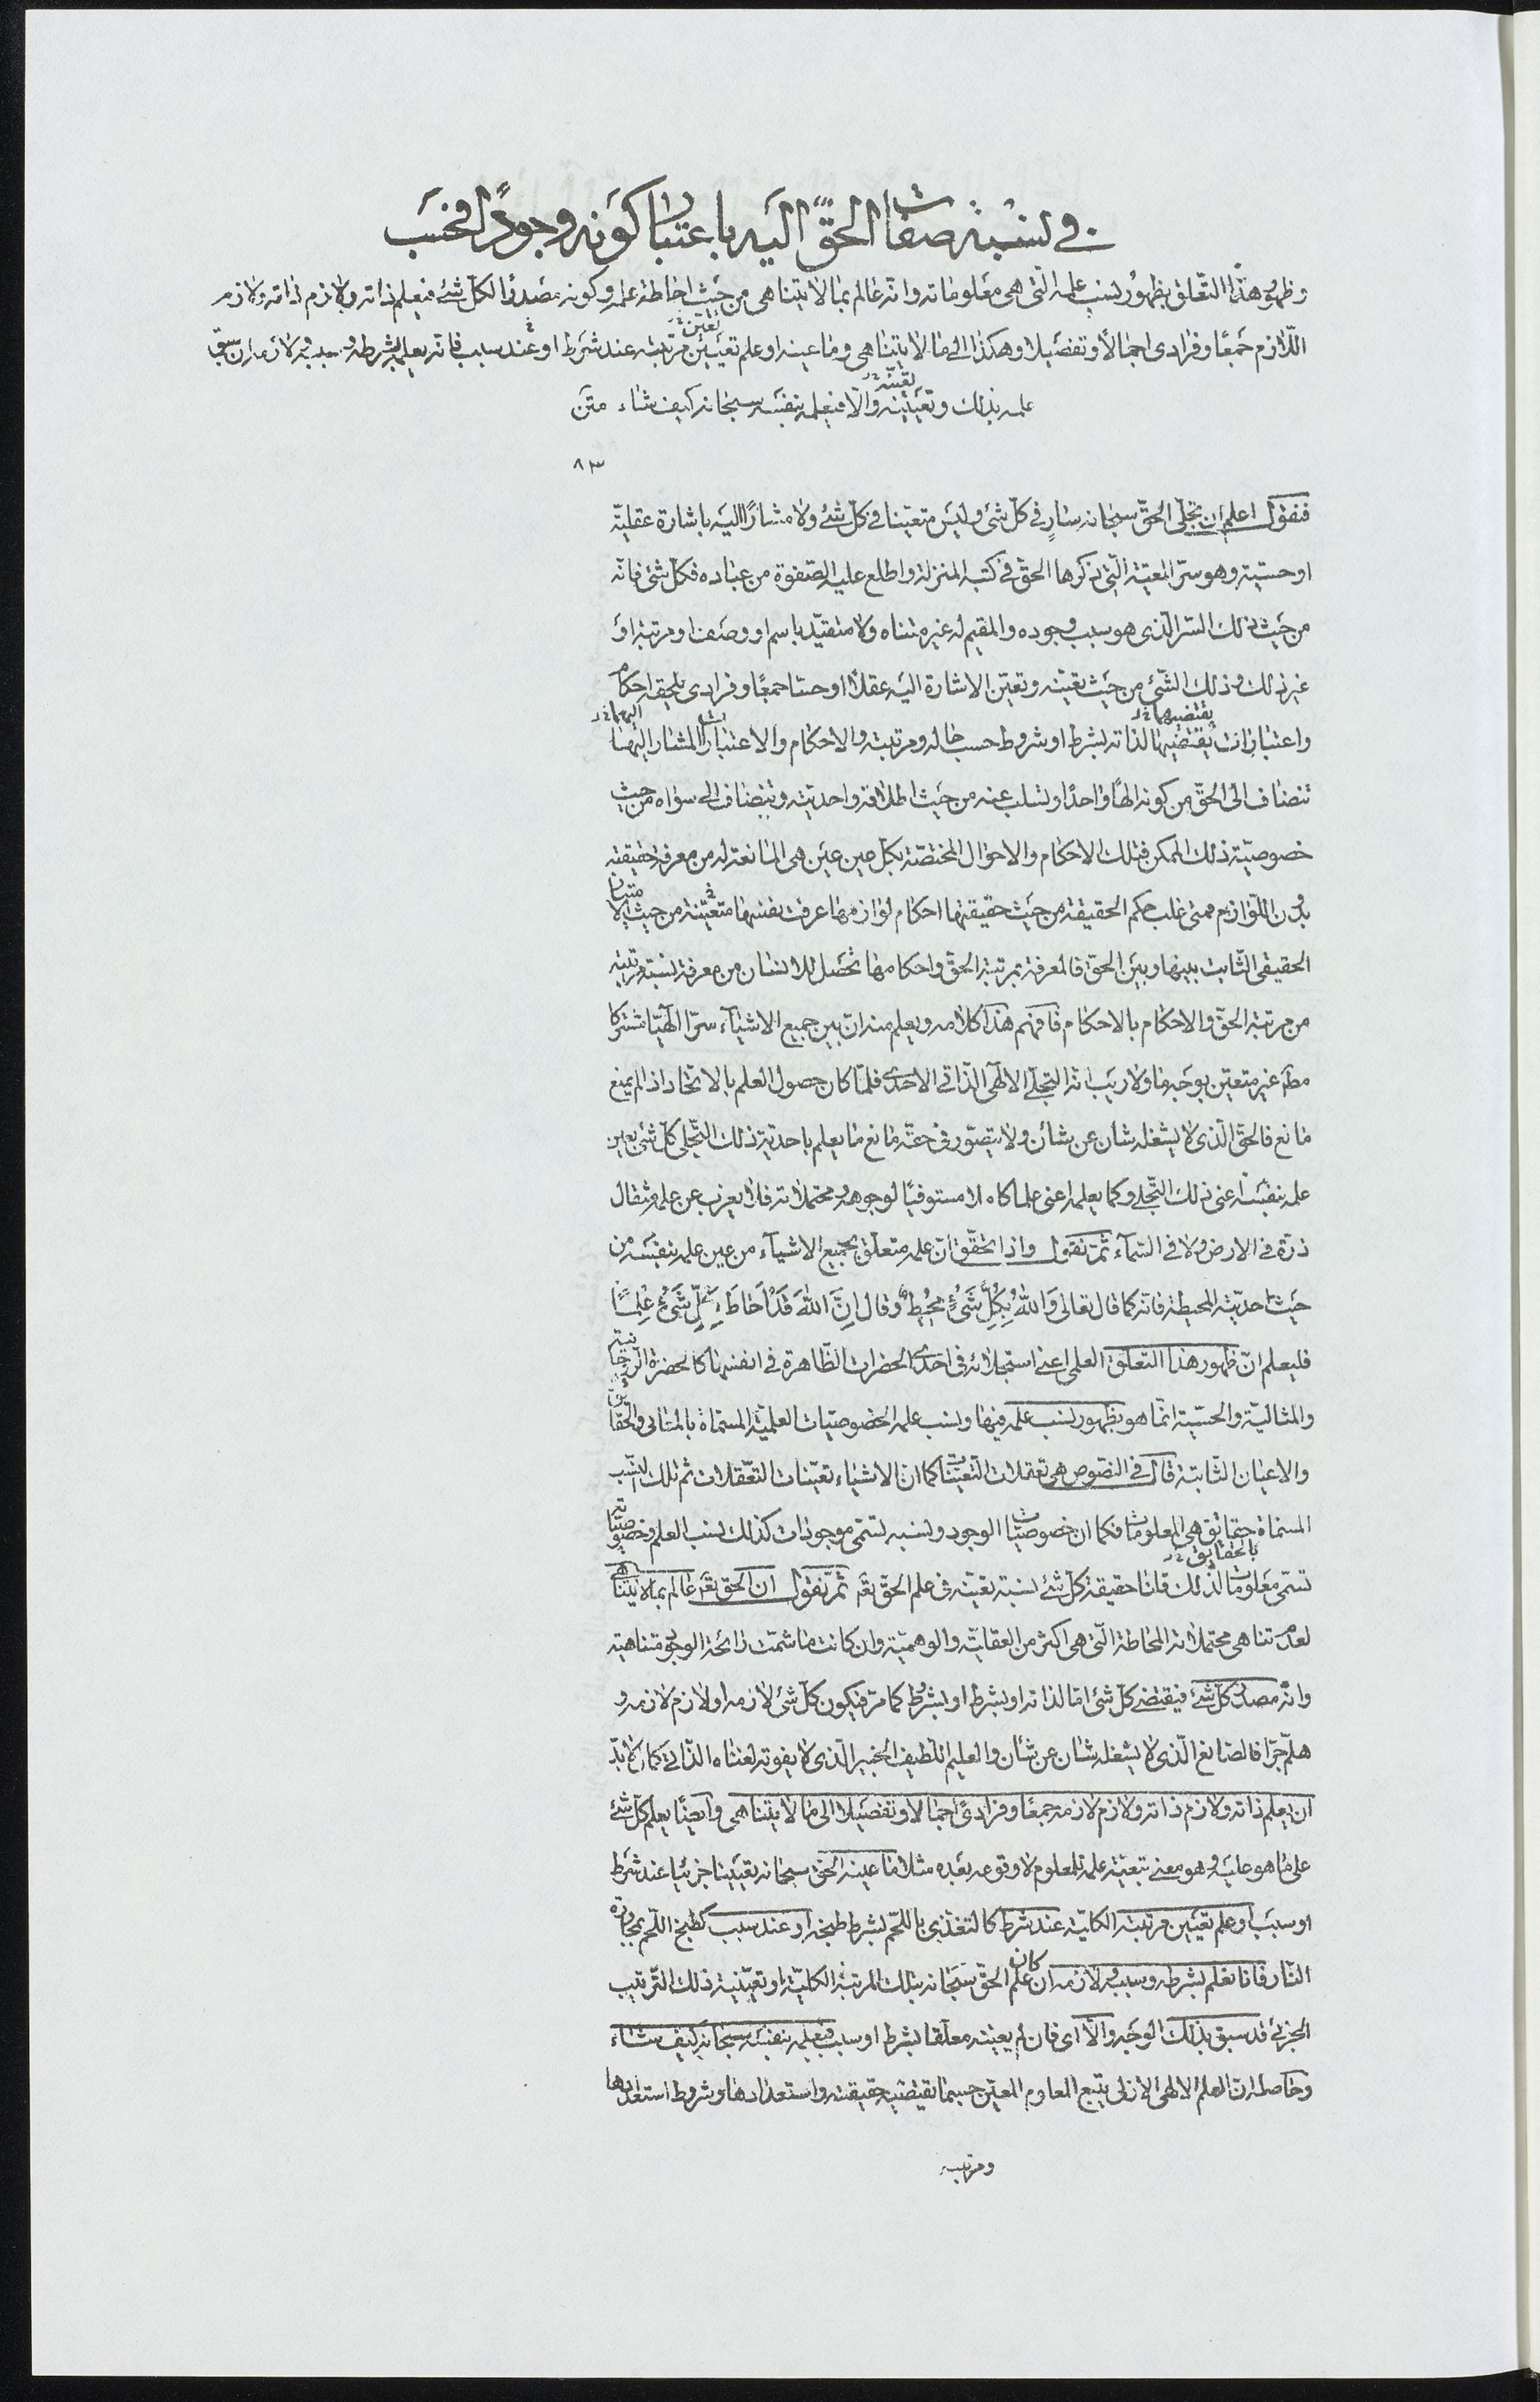 في نسبة صفات الحقّ اليه باعتبار كونه وجوداً فحسب
وظهور هذا التعلق بظهور نسب علمه التى هى معلوماته وانه عالم بما لا يتناهى من حيث احاطة علمه وكونه مصدرا لكل شئ فيعلم ذاته ولازم ذاته ولازم
اللازم جمعًا وفرادى اجمالاً وتفصيلا وهكذا الى ما لا يتناهى وما عينه او علم تعيين مرتبته عند شرط او عند سبب فانه يعلمه بشرطه وسببه ولازمه ان سبق
علمه بذلك وتعيينه والا فيعلمه بنفسه سبحانه كيف شاء متن
٨٣
فنقول اعلم ان تجلّى الحقّ سبحانه سارٍ في كل شئ وليس متعيّنا في كل شئ ولا مشارًا اليه باشارة عقلية
او حسيّة وهو سرّ المعيّة التى ذكرها الحق في كتبه المنزلة واطلع عليه الصفوة من عباده فكل شئ فانه
من حيث ذلك السرّ الذى هو سبب وجوده والمقيم له غير متناه ولا متقيّد باسم او وصف او مرتبة او
غير ذلك وذلك الشئ من حيث تعيّنه وتعيّن الاشارة اليه عقلا او حسا جمعًا وفرادى يلحقه احكام
واعتبارات يقتضيها لذاته بشرط او شروط حسب حاله ومرتبته والاحكام والاعتبارات المشار اليها
تنضاف الى الحقّ من كونه الهًا واحدًا وتسلب عنه من حيث اطلاقه واحديته وتنضاف الى سواه من حيث
خصوصيّة ذلك الممكن فتلك الاحكام والاحوال المختصّة بكل عين عين هى المانعة له من معرفة حقيقته
بدون اللوازم فمتى غلب حكم الحقيقة من حيث حقيقتها احكام لوازمها عرفت نفسها متعيّنة من حيث الامتياز
الحقيقى الثابت بينها وبين الحق فالمعرفة بمرتبة الحق واحكامها تحصل للانسان من معرفة نسبة مرتبته
من مرتبة الحقّ والاحكام بالاحكام فافهم هذا كلامه ويعلم منه ان بين جميع الاشياء سرّا الٓهيّا مشتركا
مطلقا غير متعيّن بوجه ما ولا ريب انّه التجلّى الالٓهى الذاتى الاحدى فلمّا كان حصول العلم بالاتحاد اذا لم يمنع
مانع فالحق الذى لا يشغله شان عن شان ولا يتصوّر في حقّه مانع ما يعلم باحدية ذلك التجلى كل شئ بعين
علمه بنفسه اعنى ذلك التجلى وكما يعلمه اعنى علما كاملا مستوفيًا لوجوهه ومحتملاته فلا يعزب عن علمه مثقال
ذرّة في الارض ولا في السّماء ثمّ نقول واذا تحقّق ان علمه متعلّق بجميع الاشياء من عين علمه بنفسه من
حيث احديّته المحيطة فانه كما قال تعالى وَاللهُ بِكُلِّ شَئٍ مُحِيطٌ وقال اِنَّ اللهَ قَدْ اَحَاطَ بِكُلِّ شَئٍ عِلْمًا
فليعلم انّ ظهور هذا التعلّق العلمى اعنى استجلائه في احدى الحضرات الظاهرة في انفسها كالحضرة الروحانية
والمثاليّة والحسّيّة انّما هو بظهور نسب علمه فيها ونسب علمه الخصوصيّات العلميّة المسمّاة بالمعانى والحقائق
والاعيان الثابتة قال في النصوص هى تعقلات التعيّنات كما انّ الاشياء تعيّنات التعقلات ثم تلك النسب
المسمّاة حقائق هى المعلومات فكما ان خصوصيّات الوجود ونسبه تسمّى موجودات كذلك نسب العلم وخصوصيّاته
تسمّى معلومات لذلك قلنا حقيقة كل شئ نسبة تعيّنه في علم الحقّ تعه ثمّ نقول ان الحق تعه عالم بما لا يتناهى
لعدم تناهى محتملاته المحاطة التى هى اكثر من العقليّة والوهميّة وان كانت ما شمت رائحة الوجود متناهية
وانّه مصدر كل شئ فيقتضى كل شئ امّا لذاته او بشرط او بشروط كما مرّ فيكون كل شئ لازمه او لازم لازمه و
هلمّ جرّا فالصانع الذى لا يشغله شان عن شان والعليم اللطيف الخبير الذى لا يفوته لغناه الذاتى كمال لا بدّ
ان يعلم ذاته ولازم ذاته ولازم لازمه جمعًا وفرادىً اجمالا وتفصيلا الى ما لا يتناهى وايضًا يعلم كل شئ
على ما هو عليه وهو معنى تبعيّة علمه للمعلوم لا وقوعه بعده مثلا ما عينه الحق سبحانه تعيينا جزئيا عند شرط
او سبب او علم تعيين مرتبته الكليّة عند شرط كالتغذّى باللحم بشرط طبخه او عند سبب كطبخ اللحم بمجاورة
النار فانما يعلم بشرطه وسببه ولازمه ان كان علم الحقّ سبحانه بتلك المرتبة الكليّة او تعيّنه ذلك الترتيب
الجزئى قد سبق بذلك الوجه والّا اى فان لم يعينه معلقا بشرط او سبب فيعلمه بنفسه سبحانه كيف شاء
وحاصله ان العلم الالهى الازلى يتبع المعلوم المعيّن حسبما تقتضيه حقيقته واستعدادها وشروط استعدادها
ومرتبته